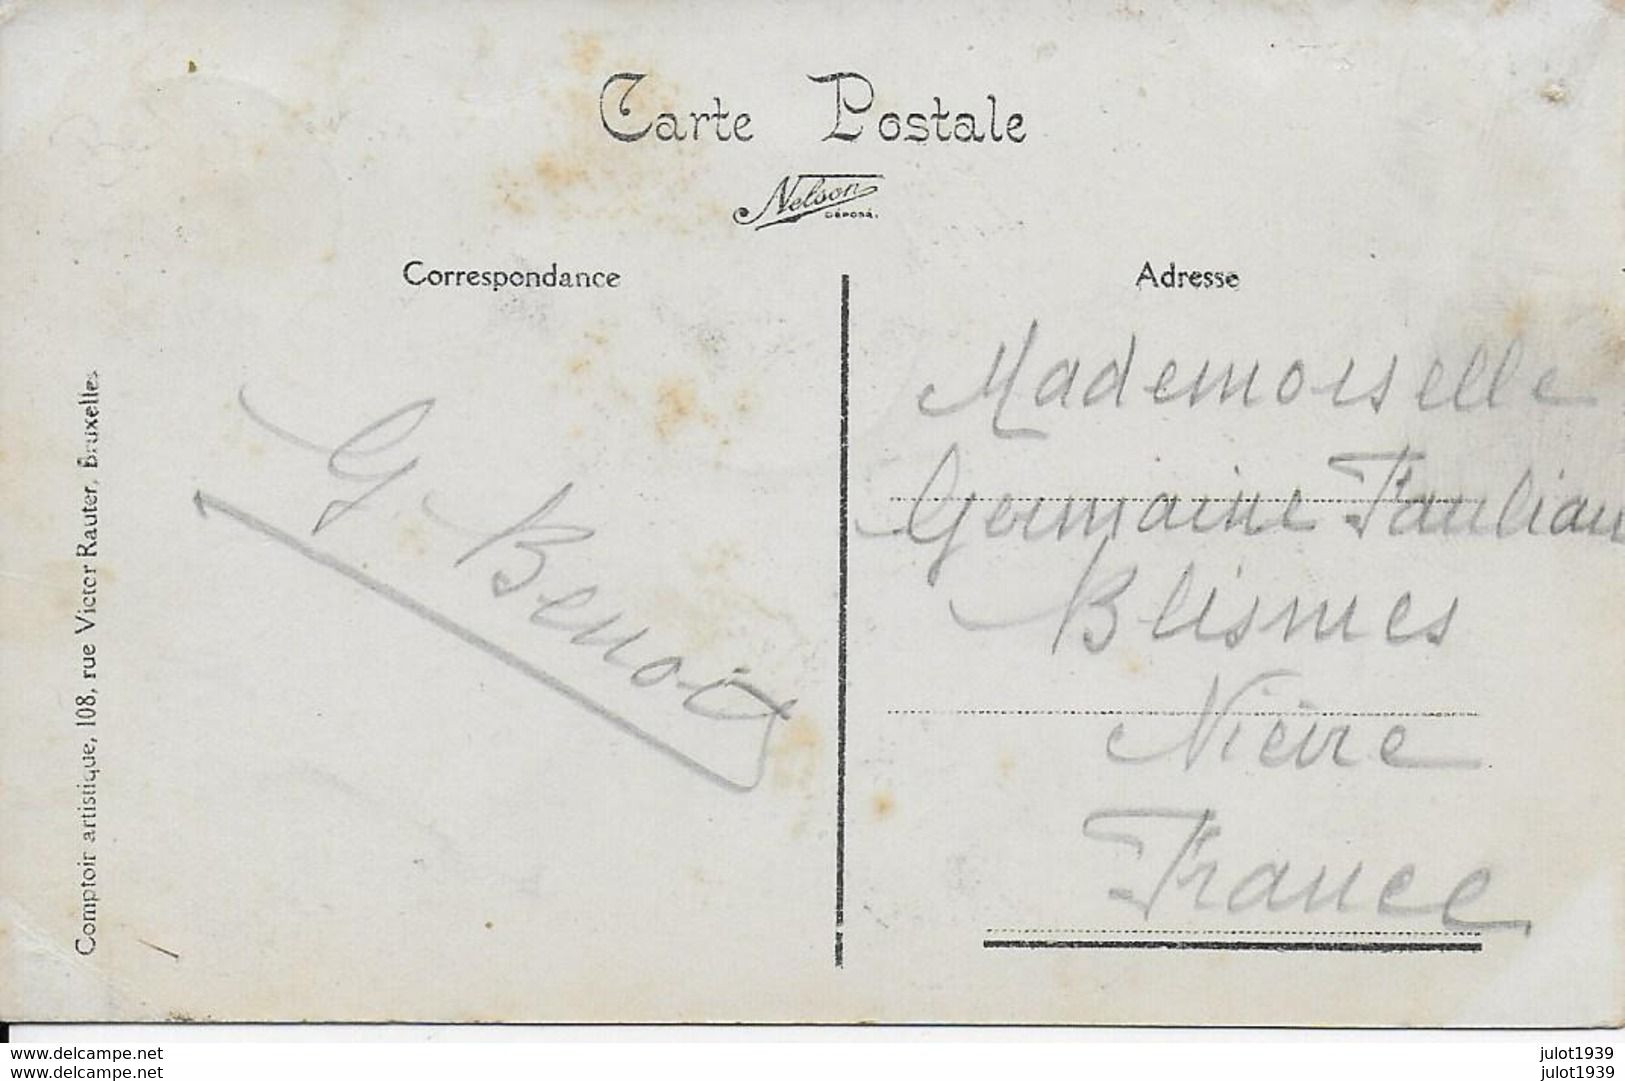 Carte Postale
Nelson
DÉPOSÉ.
Correspondance
Adresse
G. Benoit
Mademoiselle
Germaine
Blismes
Nièvre
France
Comptoir artistique, 108, rue Victor Rauter, Bruxelles
www.delcampe.net
www.delcampe.com
julot1939
julot1939